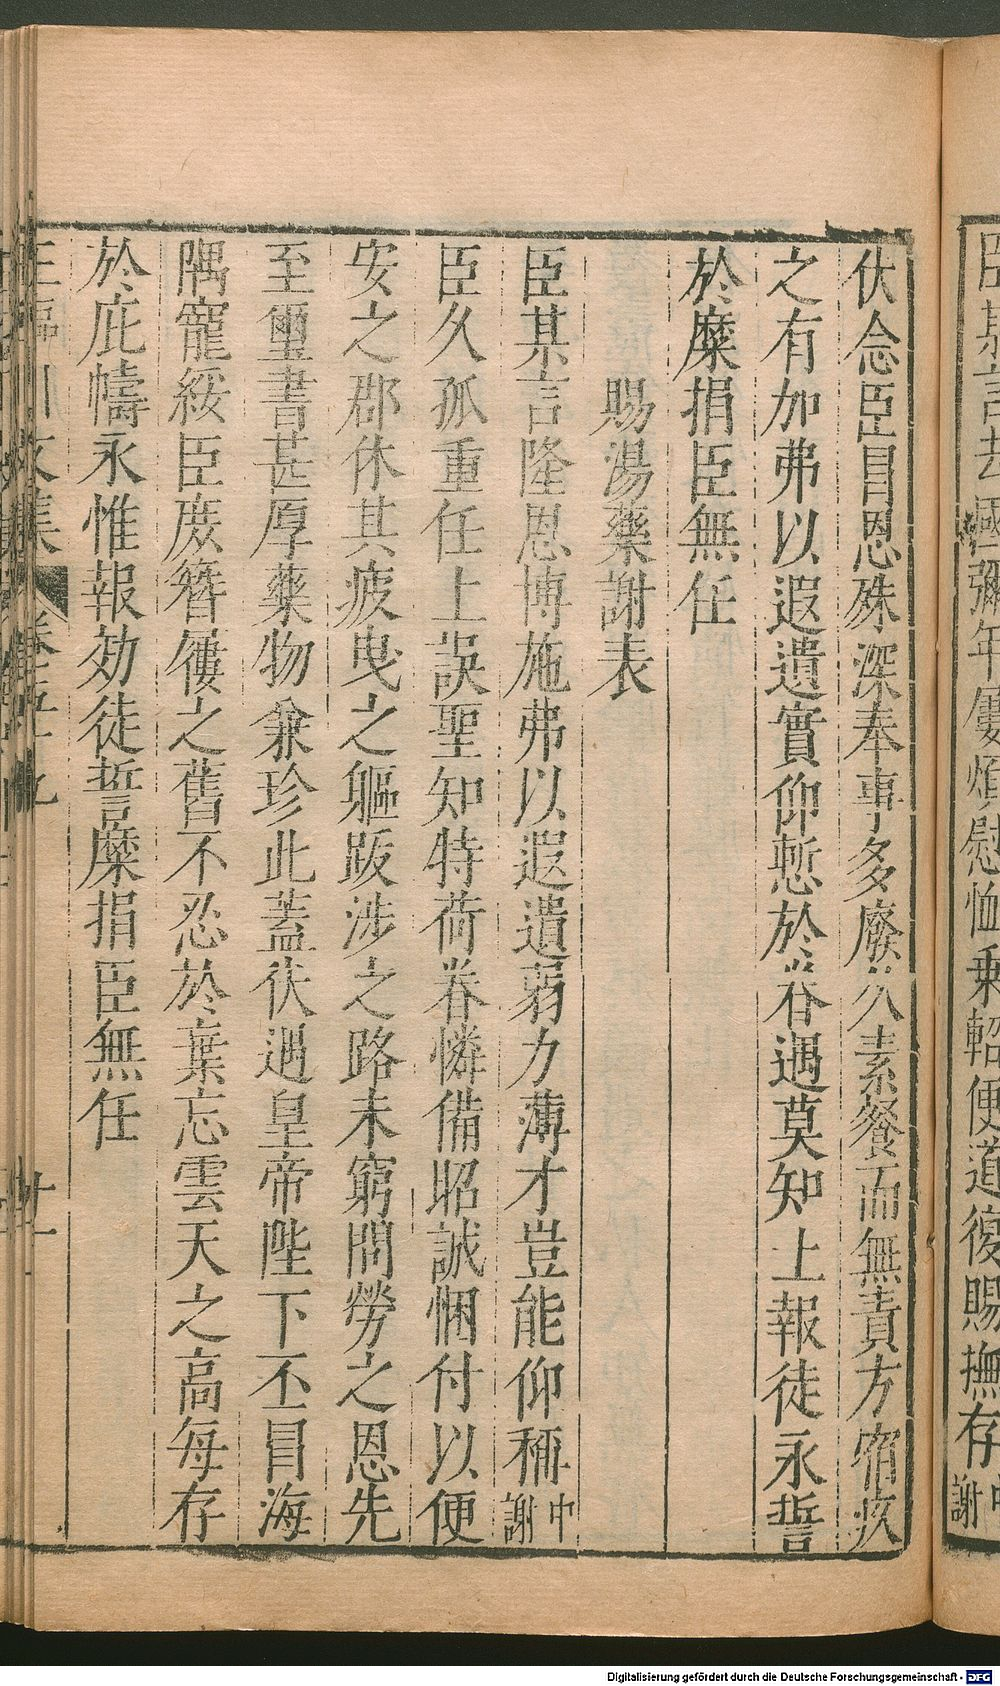 臣某言去國彌年屢煩慰恤乗軺便道復賜撫存中謝
伏念臣冒恩殊深奉事多廢久素餐而無責方宿疚
之有加弗以遐遺實仰慙於眷遇莫知上報徒永誓
於糜捐臣無任
賜湯藥謝表
臣某言隆恩博施弗以遐遺弱力薄才豈能仰稱中謝
臣久孤重任上誤聖知特荷眷憐備昭誠悃付以便
安之郡休其疲曵之軀跋涉之路未窮問勞之恩先
至璽書甚厚藥物兼珍此蓋伏遇皇帝陛下丕冒海
隅寵綏臣庻簪僂之舊不忍於棄忘雲天之高每存
於庇幬永惟報効徒誓糜捐臣無任
卷五十九
廿一
Digitalisierung gefördert durch die Deutsche Forschungsgemeinschaft - DFG